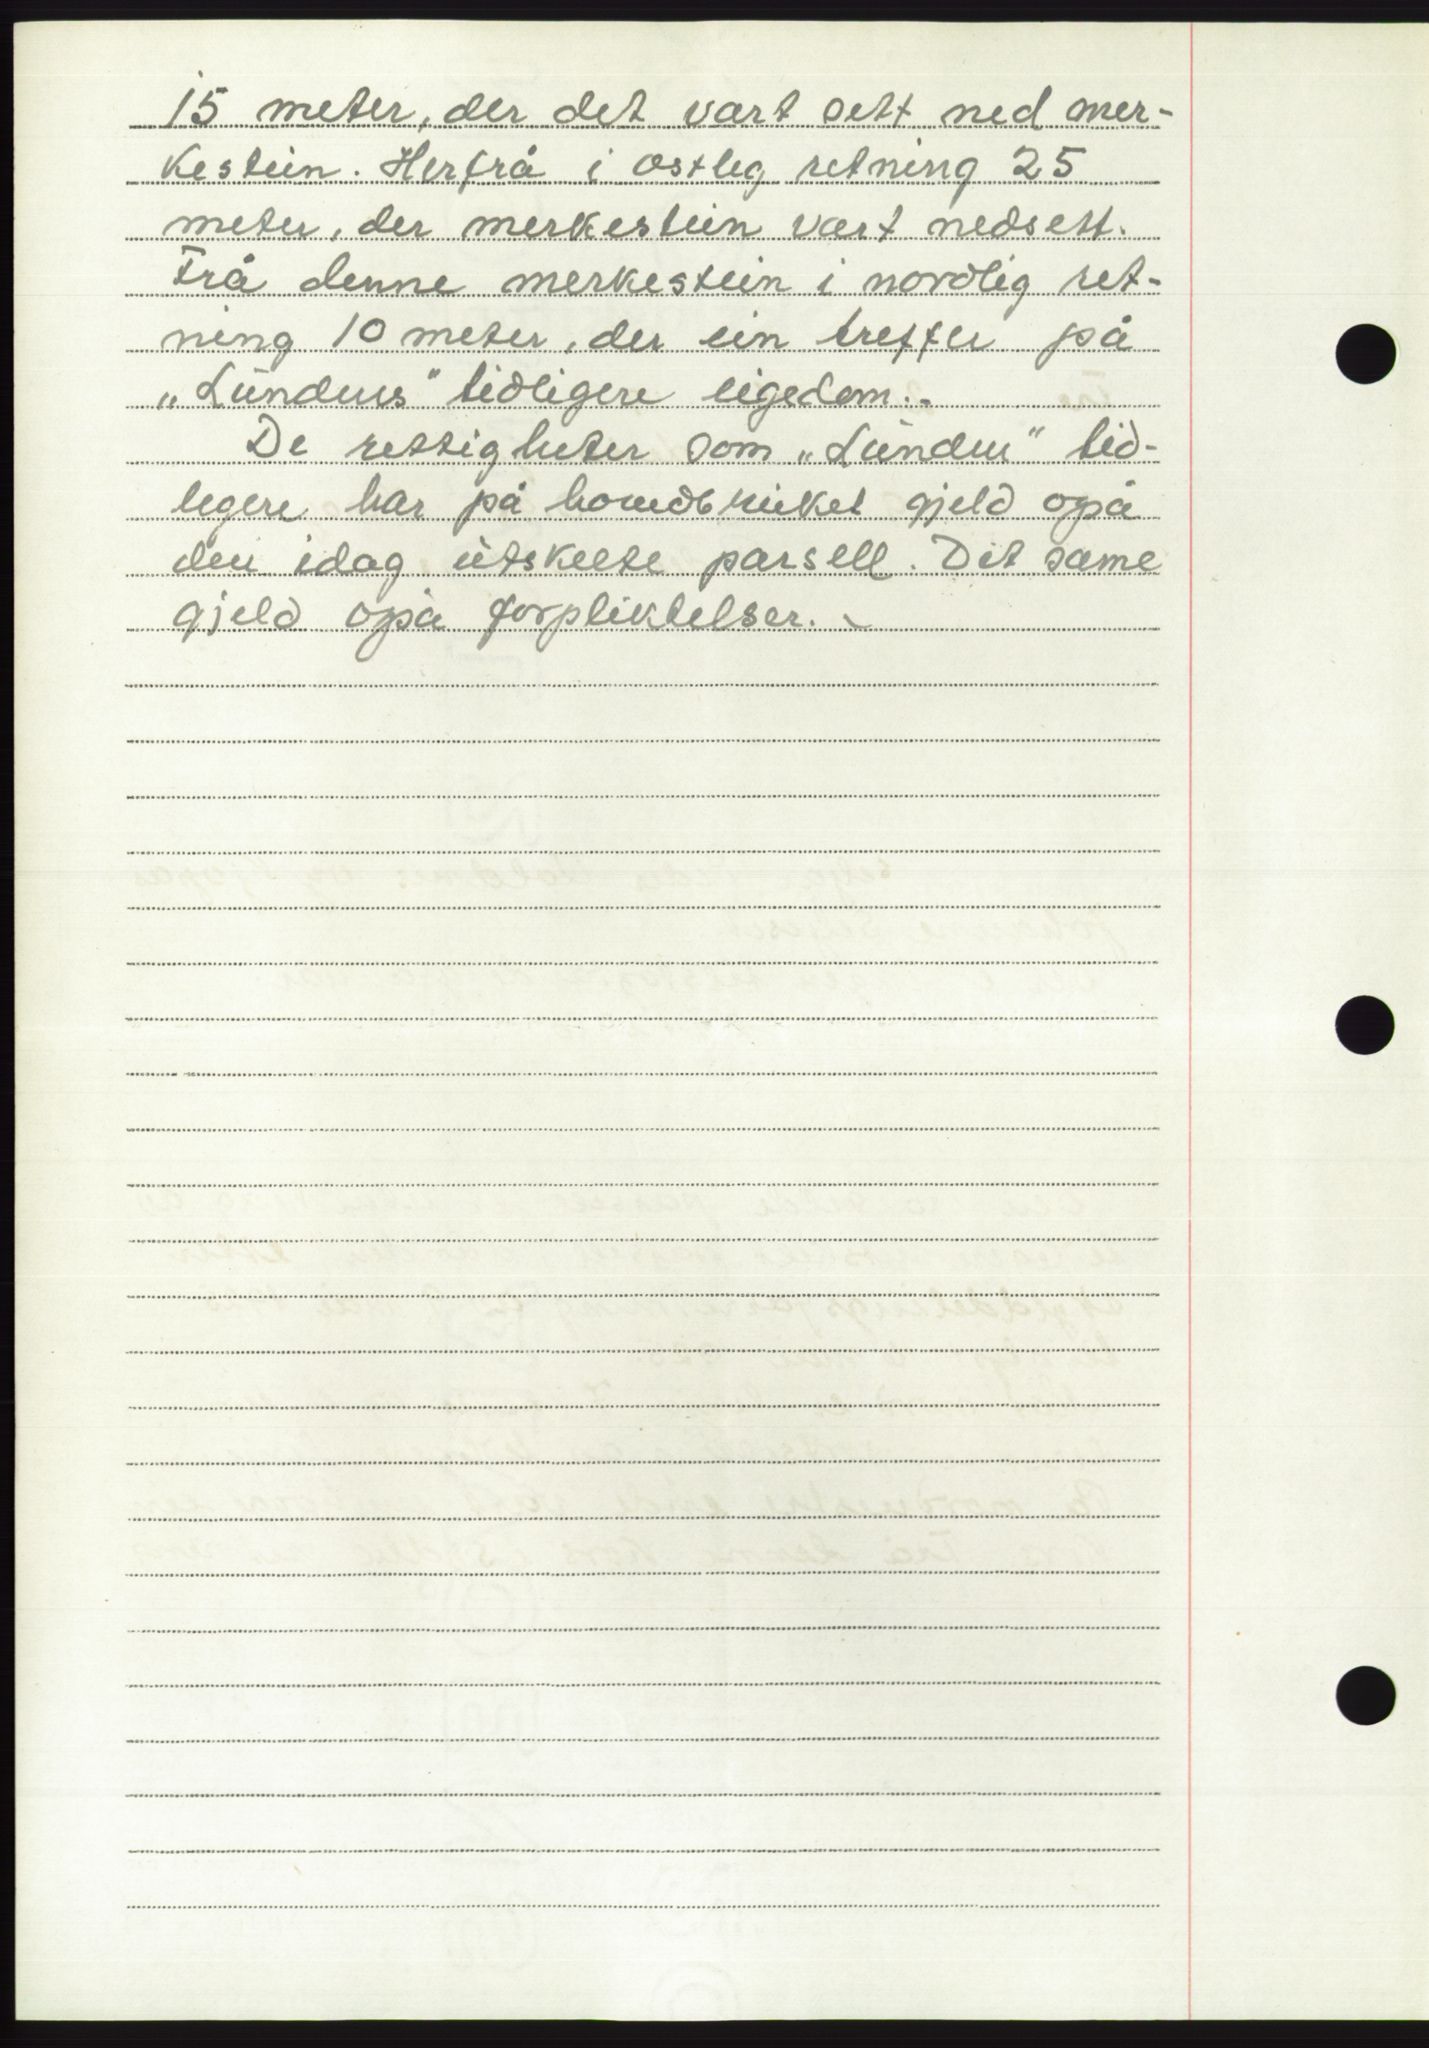 15 meter, der det vart sett ned mer-
kestein. Herfrå i ostleg retning 25
meter, der merkestein vart nedsett.
Frå denne merkestein i nordlig ret-
ning 10 meter, der ein treffer på
„Lundens" tidligere eigedom.-
De rettigheter som „Lunden" tid-
legere har på hovedbruket gjeld også
den idag utskelte parsell. Det same
gjeld også forpliktelser. -